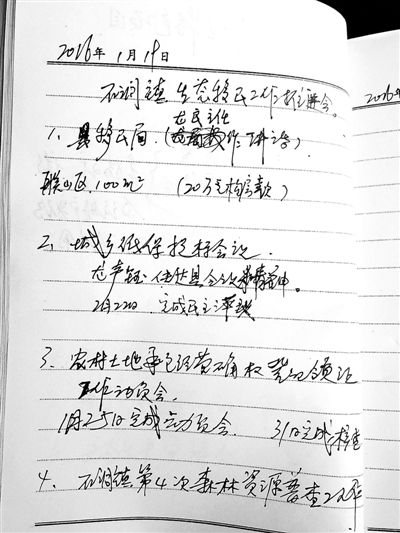 2016年1月19日
石洞镇生态移民工作推进会。
龙民主任
1、县移民局（作讲话）
联山区100m² （20万元购房款）
2、城乡低保提标会议
传达县会议精神。
2月22日 完成民主评议
3、农村土地承包经营确权登记颁证
工作动员会。
1月25日完成动员会. 31日完成核查
4、石洞镇第4次森林资源普查工作
2016年